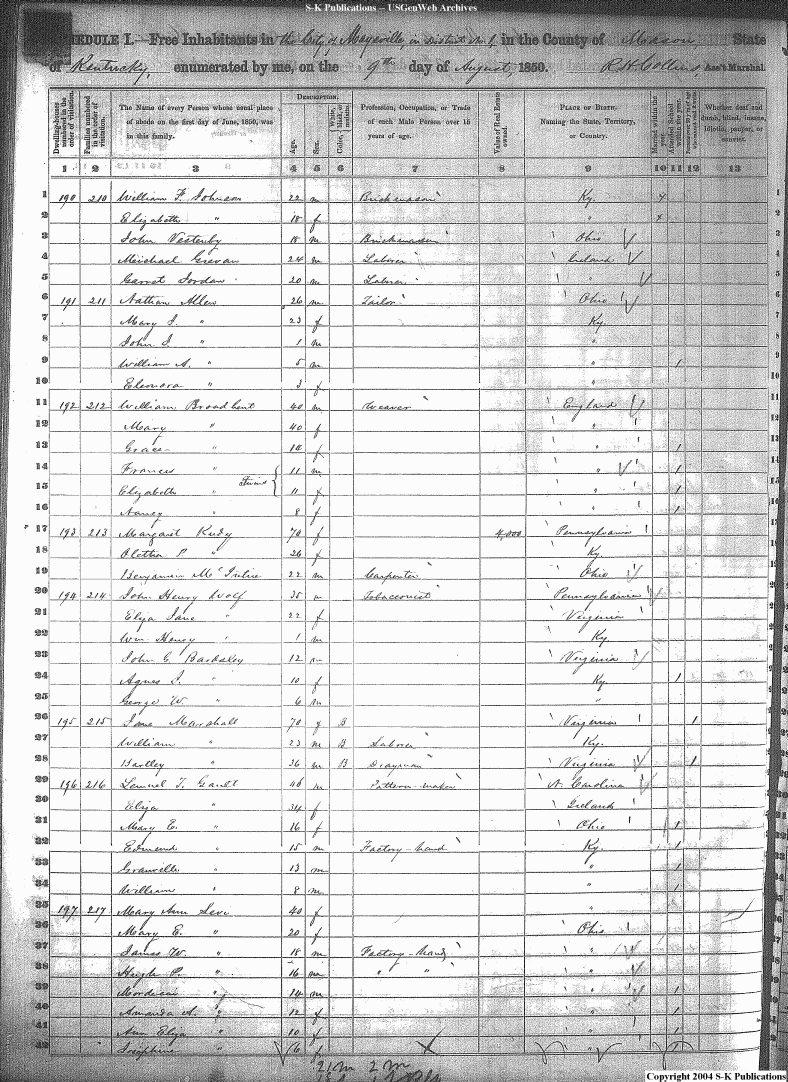 S-K Publications – USGenWeb Archives
SCHEDULE I.—Free Inhabitants in the City of Maysville, in District No 1, in the County of Mason, State
of Kentucky, enumerated by me, on the 9th day of August, 1850. R H Collins, Ass't Marshal.
Dwelling-houses numbered in the order of visitation.
Families numbered in the order of visitation.
The Name of every Person whose usual place of abode on the first day of June, 1850, was in this family.
Description.
Age.
Sex.
Color, White, black, or mulatto.
Profession, Occupation, or Trade of each Male Person over 15 years of age.
Value of Real Estate owned.
Place of Birth, Naming the State, Territory, or Country.
Married within the year.
Attended School within the year.
Whether deaf and dumb, blind, insane, idiotic, pauper, or convict.
1 2 3 4 5 6 7 8 9 10 11 12 13
1 190 210 William F. Johnson 22 m Brickmason Ky.
2 Elizabeth " 18 f "
3 John 18 m Brickmason Ohio
4 24 m Laborer Ireland
5 Garret Jordan 20 m Laborer "
6 191 211 Nathan Allen 26 m Tailor Ohio
7 Mary J. " 23 f Ky.
8 John J. " 1 m "
9 William A. " 5 m " 1
10 Eleonora " 3 f "
11 192 212 William Broadbent 40 m Weaver England
12 Mary " 40 f "
13 Grace " f " 1
14 Frances " 11 m " 1
15 Elizabeth " twins 11 f " 1
16 Nancy " 8 f " 1
17 193 213 Margaret 70 f 4,000 Pennsylvania
18 P. " 26 f Ky.
19 Benjamin McIntire 22 m Carpenter Ohio
20 194 214 John Henry Wolf 35 m Tobacconist Pennsylvania
21 Eliza Jane " 22 f Virginia
22 Wm Henry " 1 m Ky.
23 John G. Bardsley 12 m Virginia
24 Agnes J. " 10 f Ky. 1
25 George W. " 6 m "
26 195 215 Jane Marshall 70 f B Virginia 1
27 William " 23 m B Laborer Ky.
28 Hartley " 36 m B Drayman Virginia 1
29 196 216 Lemuel T. Gault 46 m Pattern-maker N. Carolina
30 Eliza " 34 f Ireland
31 Mary E. " 16 f Ohio 1
32 Edmund " 15 m Factory-hand Ky. 1
33 Granville " 13 m " 1
34 William " 8 m " 1
35 197 217 Mary Ann Levi 40 f "
36 Mary E. " 20 f Ohio
37 James W. " 18 m Factory-hand "
38 Hugh P. " 16 m " " "
39 Mordecai " 14 m " 1
40 Amanda A. " 12 f " 1
41 Ann Eliza " 10 f " 1
42 Josephine " 6 f " 1
21 m 2 m
Copyright 2004 S-K Publications